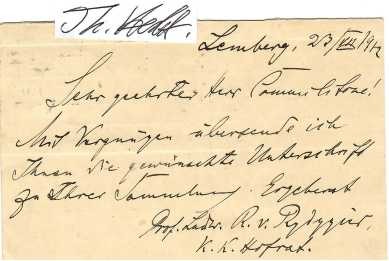 Th.
Lemberg, 23/VII 912
Sehr geehrter Herr Commilitone!
Mit Vergnügen übersende ich
Ihnen die gewünschte Unterschrift
zu Ihrer Sammlung. Ergebenst
Prof. Ladw. R. v. Rydygier,
K. K. Hofrat.